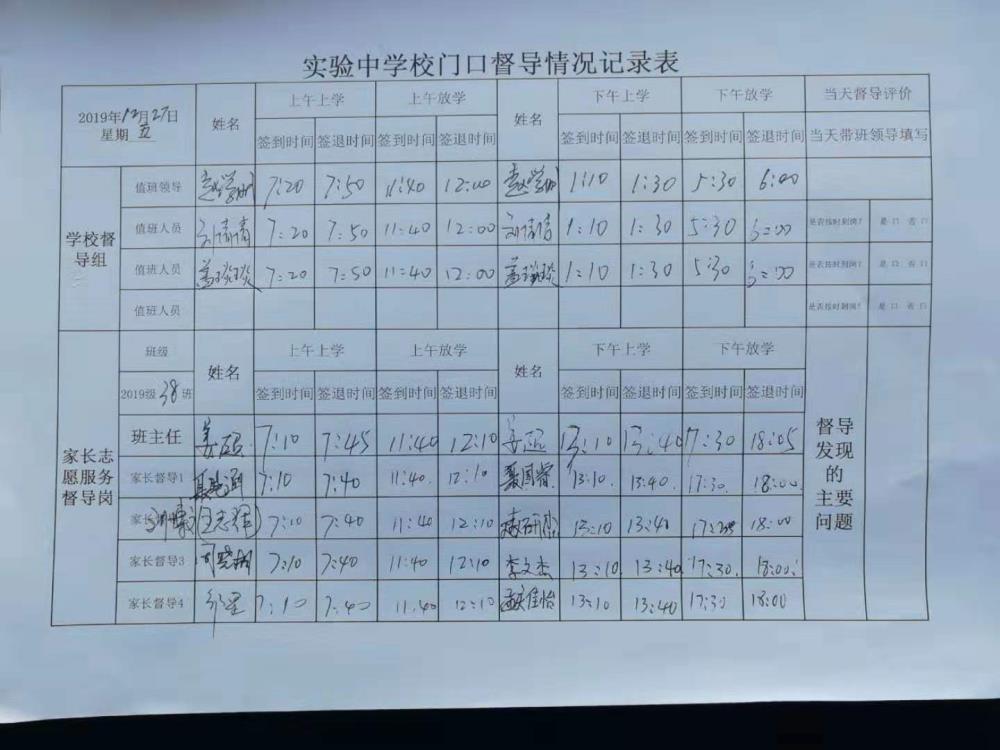 实验中学校门口督导情况记录表
2019年12月27日 星期五 姓名 上午上学 上午放学 姓名 下午上学 下午放学 当天督导评价
签到时间 签退时间 签到时间 签退时间 签到时间 签退时间 签到时间 签退时间 当天带班领导填写
学校督导组
值班领导 7:20 7:50 11:40 12:00 1:10 1:30 5:30 6:00
值班人员 刘倩倩 7:20 7:50 11:40 12:00 刘倩倩 1:10 1:30 5:30 6:00 是否按时到岗? 是 口 否 口
值班人员 7:20 7:50 11:40 12:00 1:10 1:30 5:30 6:00 是否按时到岗? 是 口 否 口
值班人员 是否按时到岗? 是 口 否 口
家长志愿服务督导岗
班级 姓名 上午上学 上午放学 姓名 下午上学 下午放学
2019级38班 签到时间 签退时间 签到时间 签退时间 签到时间 签退时间 签到时间 签退时间
督导发现的主要问题
班主任 7:10 7:45 11:40 12:10 13:10 13:40 17:30 18:05
家长督导1 7:10 7:40 11:40 12:10 聂国睿 13:10 13:40 17:30 18:00
王志强 7:10 7:40 11:40 12:10 13:10 13:40 18:00
家长督导3 7:10 7:40 11:40 12:10 李文杰 13:10 13:40 17:30 18:00
家长督导4 7:10 7:40 11:40 12:10 孟佳怡 13:10 13:40 17:30 18:00